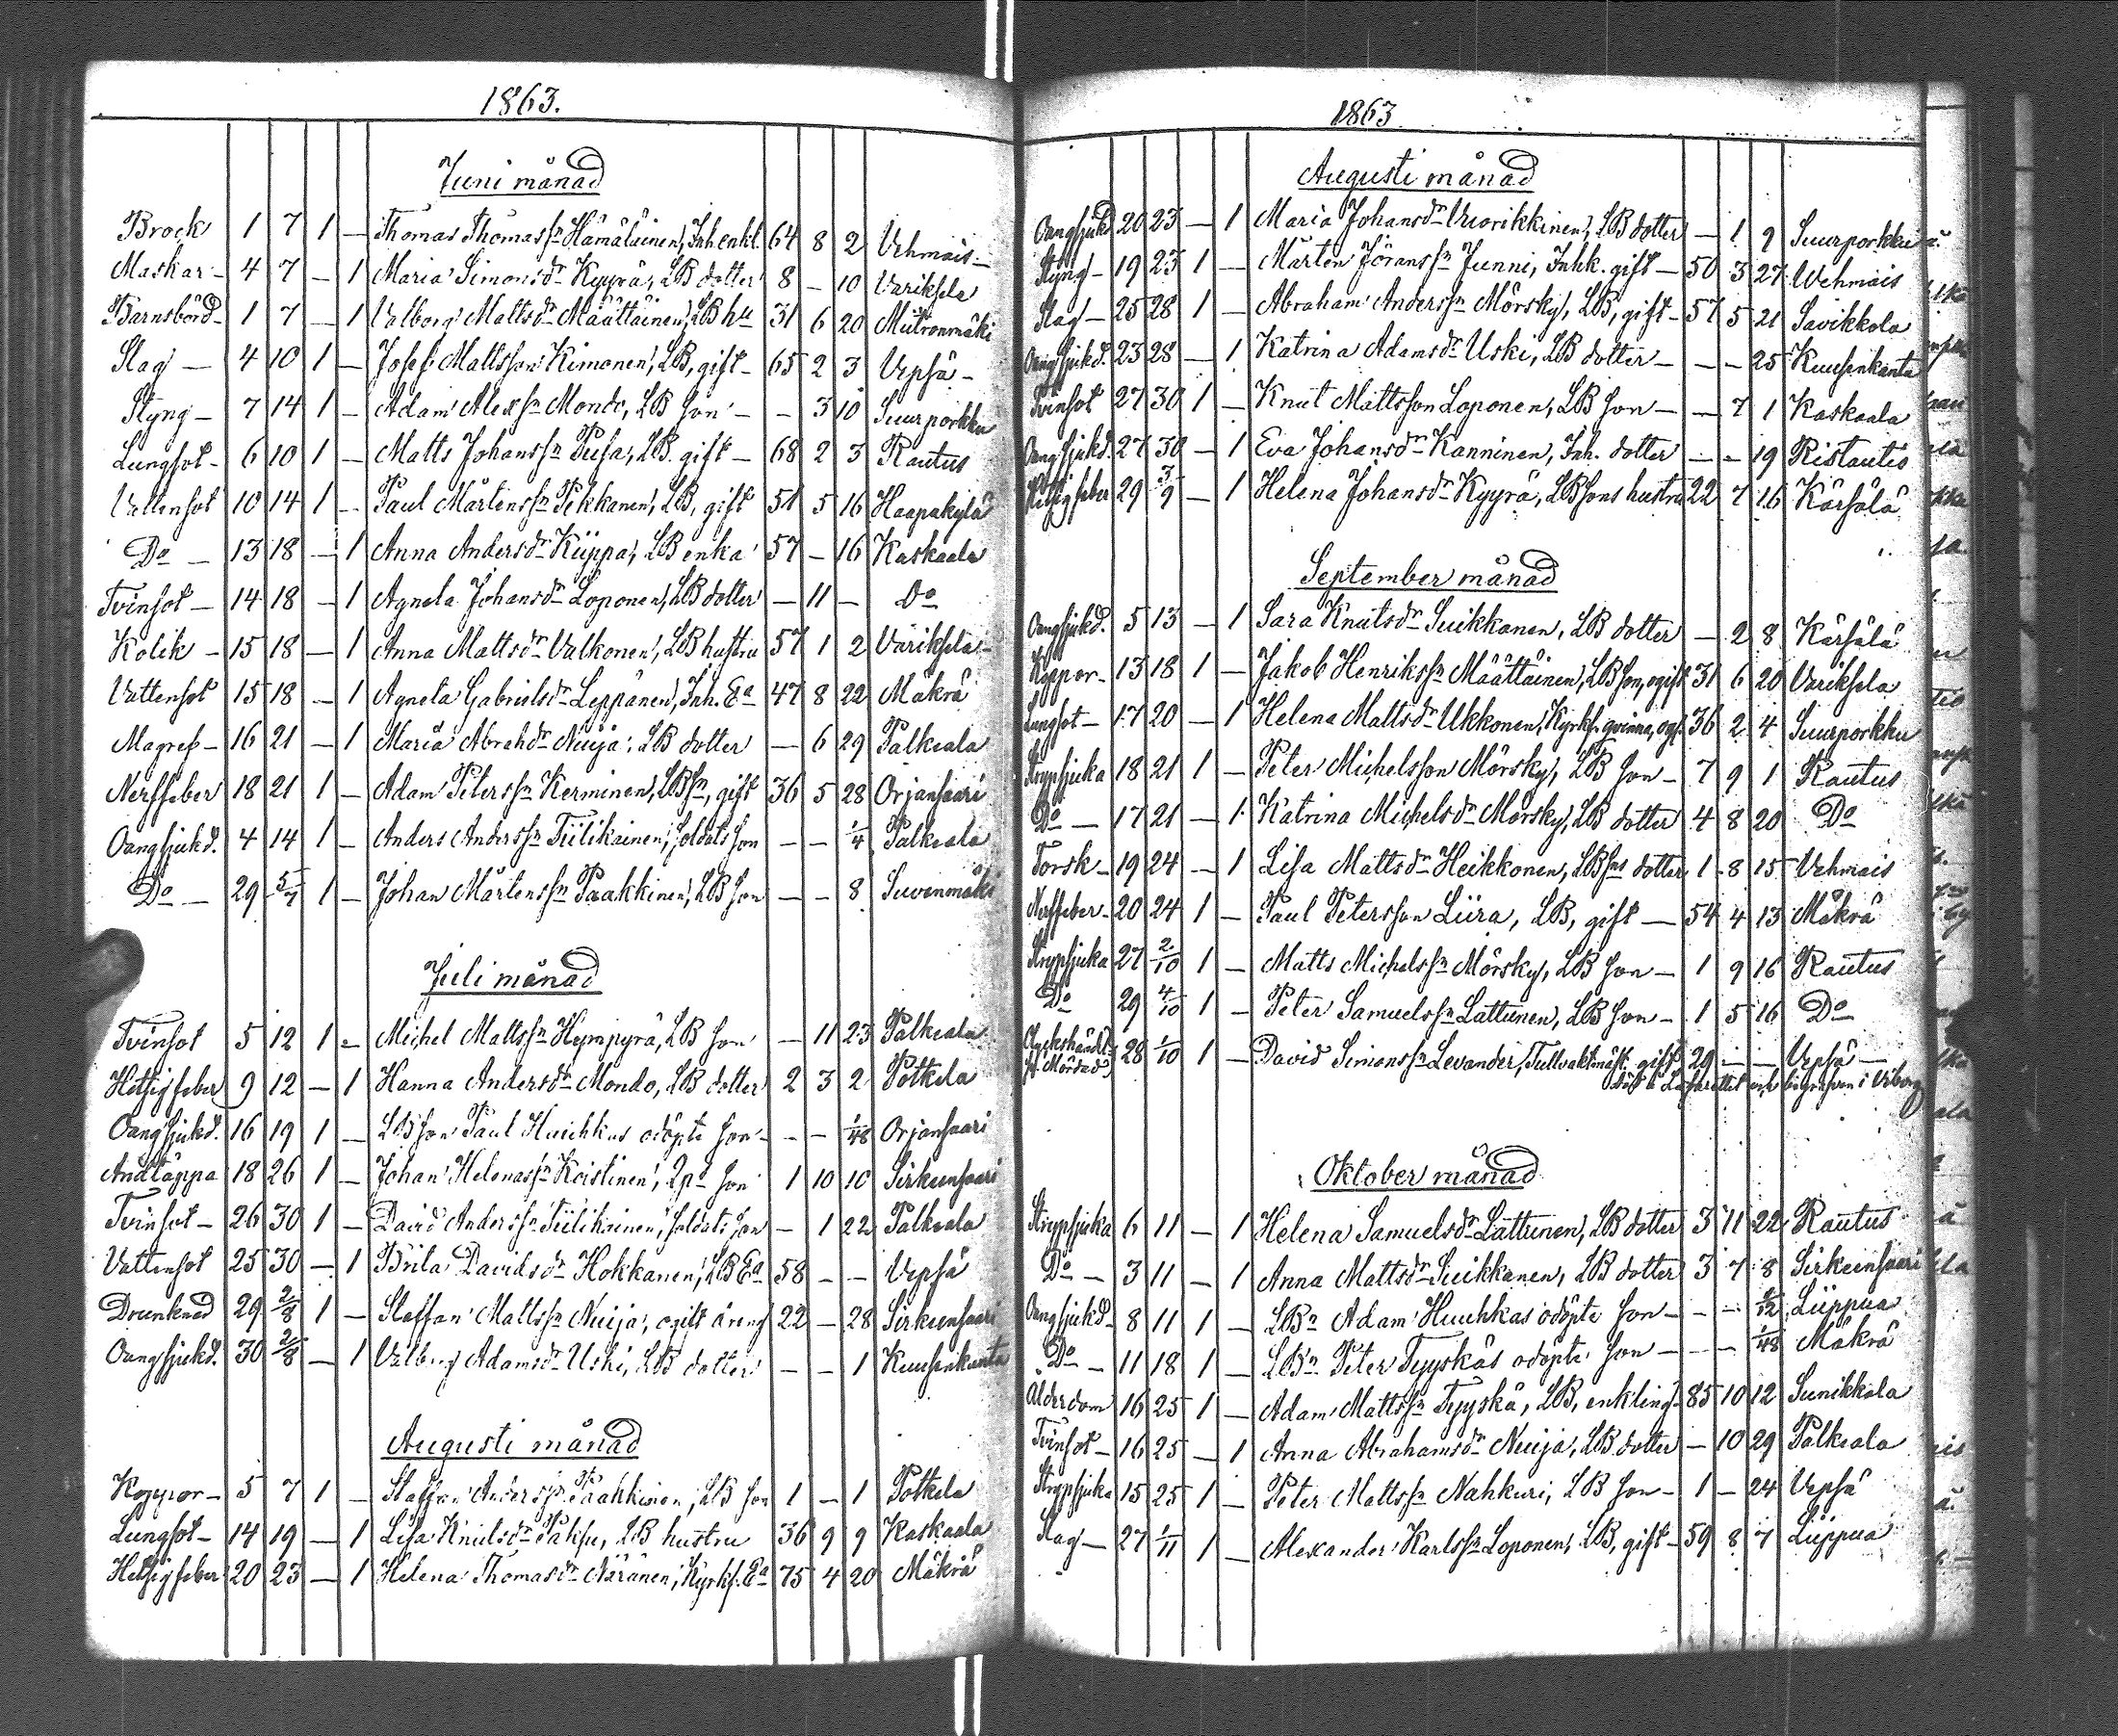 1863.
Juni månad
Brock 1 7 1 — Thomas Thomass:n Hämäläinen, Inh. enkl. 64 8 2 Vehmais —
Maskar — 4 7 — 1 Maria Simonsd:r Kyyrä, LB dotter 8 — 10 Variksela
Barnsbörd — 1 7 — 1 Valborg Mattsd:r Määttäinen, LB hu 31 6 20 Miitronmäki
Slag — 4 10 1 — Josef Mattsson Kimonen, LB, gift — 65 2 3 Vepsä —
Styng — 7 14 1 — Adam Alexs:n Mondo, LB son — — 3 10 Suurporkku
Lungsot — 6 10 1 — Matts Johanss:n Pusa, LB. gift — 68 2 3 Rautus
Vattensot 10 14 1 — Paul Mårtenss:n Pekkanen, LB, gift 51 5 16 Haapakylä
Do — 13 18 — 1 Anna Andersd:r Kiippa, LB enka 57 — 16 Kaskaala
Tvinsot — 14 18 — 1 Agneta Johansd:r Loponen, LB dotter — 11 — Do
Kolik — 15 18 — 1 Anna Mattsd:r Valkonen, LB hustru 57 1 2 Variksela —
Vattensot 15 18 — 1 Agneta Gabrielsd:r Leppänen, Inh. Ea 47 8 22 Mäkrä
Magres — 16 21 — 1 Maria Abrahd:r Nuija, LB dotter — 6 29 Palkeala
Nerffeber 18 21 1 — Adam Peterss:n Kerminen, LBs:n, gift 36 5 28 Orjansaari
Oang sjukd. 4 14 1 — Anders Anderss:n Tiilikainen, soldats son — — 1/4 Palkeala
Do — 29 5/7 1 — Johan Mårtenss:n Paakkinen, LB son — — 8 Suvenmäki
Juli månad
Tvinsot 5 12 1 — Michel Mattss:n Hympyrä, LB son — 11 23 Palkeala
Hetsig feber 9 12 — 1 Hanna Andersd:r Mondo, LB dotter 2 3 2 Potkela
Oang sjukd. 16 19 1 — LB son Paul Huuhkas odöpte son — — — 1/48 Orjansaari
Andtäppa 18 26 1 — Johan Helenass:n Koistinen, son 1 10 10 Sirkeensaari
Tvinsot — 26 30 1 — David Anderss:n Tiilikainen, soldats son — 1 22 Palkeala
Vattensot 25 30 — 1 Brita Davidsd:r Hokkanen, LB Ea 58 — — Vepsä
Drunknad 29 2/8 1 — Staffan Mattss:n Nuija, ogift dreng 22 — 28 Sirkeensaari
Oang sjukd. 30 2/8 — 1 Valborg Adamsd:r Uski, LB dotter — — 1 Kuusenkanta
Augusti månad
Koppor — 5 7 1 — Staffan Anderss:n Paakkinen, LB son 1 — 1 Potkela
Lungsot — 14 19 — 1 Lisa Knutsd:r LB hustru 36 9 9 Kaskaala
Hetsig feber 20 23 — 1 Helena Thomasd:r Näränen, Kyrks. Ea 75 4 20 Mäkrä
1863
Augusti månad
Oang sjukd 20 23 — 1 Maria Johansd:r Vuorikkinen, LB dotter — 1 9 Suurporkku
Styng — 19 23 1 — Mårten Jöranss:n Junni, Inhk. gift — 50 3 27 Vehmais
Slag — 25 28 1 — Abraham Anderss:n Mörsky, LB, gift — 57 5 21 Savikkola
Oang sjukd. 23 28 — 1 Katrina Adamsd:r Uski, LB dotter — — — 25 Kuusenkanta
Tvinsot 27 30 1 — Knut Mattsson Loponen, LB son — — 7 1 Kaskaala
Oang sjukd. 27 30 — 1 Eva Johansd:r Kanninen, Inh. dotter — — 19 Ristautis
Hetsig feber 29 3/9 — 1 Helena Johansd:r Kyyrä, LBsons hustru 22 7 16 Kärsälä
September månad
Oang sjukd. 5 13 — 1 Sara Knutsd:r Suikkanen, LB dotter — 2 8 Kärsälä
Koppor — 13 18 1 — Jakob Henrikss:n Määttäinen, LB son, ogift 31 6 20 Variksela
Lungsot — 17 20 — 1 Helena Mattsd:r Ukkonen, Kyrks. qvinna, ogf. 36 2 4 Suurporkku
Strypsjuka 18 21 1 — Peter Michelsson Mörsky, LB son — 7 9 1 Rautus
Do — 17 21 — 1 Katrina Michelsd:r Mörsky, LB dotter 4 8 20 Do
Torsk — 19 24 — 1 Lisa Mattsd:r Heikkonen, LBsns dotter 1 8 15 Vehmais
Nerffeber — 20 24 1 — Paul Petersson Liira, LB, gift — 54 4 13 Mäkrä
Strypsjuka 27 2/10 1 — Matts Michelss:n Mörsky, LB son — 1 9 16 Rautus
Do 29 4/10 1 — Peter Samuelss:n Lattunen, LB son — 1 5 16 Do
Olyckshändl. 28 1/10 1 — David Simonss:n Levander, Tullvaktmäst. gift 29 — — Vepsä —
Mördad död å Lasarettet och begrafven i Viborg
Oktober månad
Strypsjuka 6 11 — 1 Helena Samuelsd:r Lattunen, LB dotter 3 11 22 Rautus
Do — 3 11 — 1 Anna Mattsd:r Suikkanen, LB dotter 3 7 8 Sirkeinsaari
Oang sjukd — 8 11 1 — LBn Adam Huuhkas odöpte son — — — Liippua
Do — 11 18 1 — LBn Peter Tyyskäs odöpte son — — — 1/48 Mäkrä
Ålderdom 16 25 1 — Adam Mattss:n Tyyskä, LB, enkling — 85 10 12 Sunikkala
Tvinsot — 16 25 — 1 Anna Abrahamsd:r Nuija, LB dotter — 10 29 Palkeala
Strypsjuka 15 25 1 — Peter Mattss:n Nahkuri, LB son — 1 — 24 Vepsä
Slag — 27 1/11 1 — Alexander Karlss:n Loponen, LB, gift — 59 8 7 Liippua